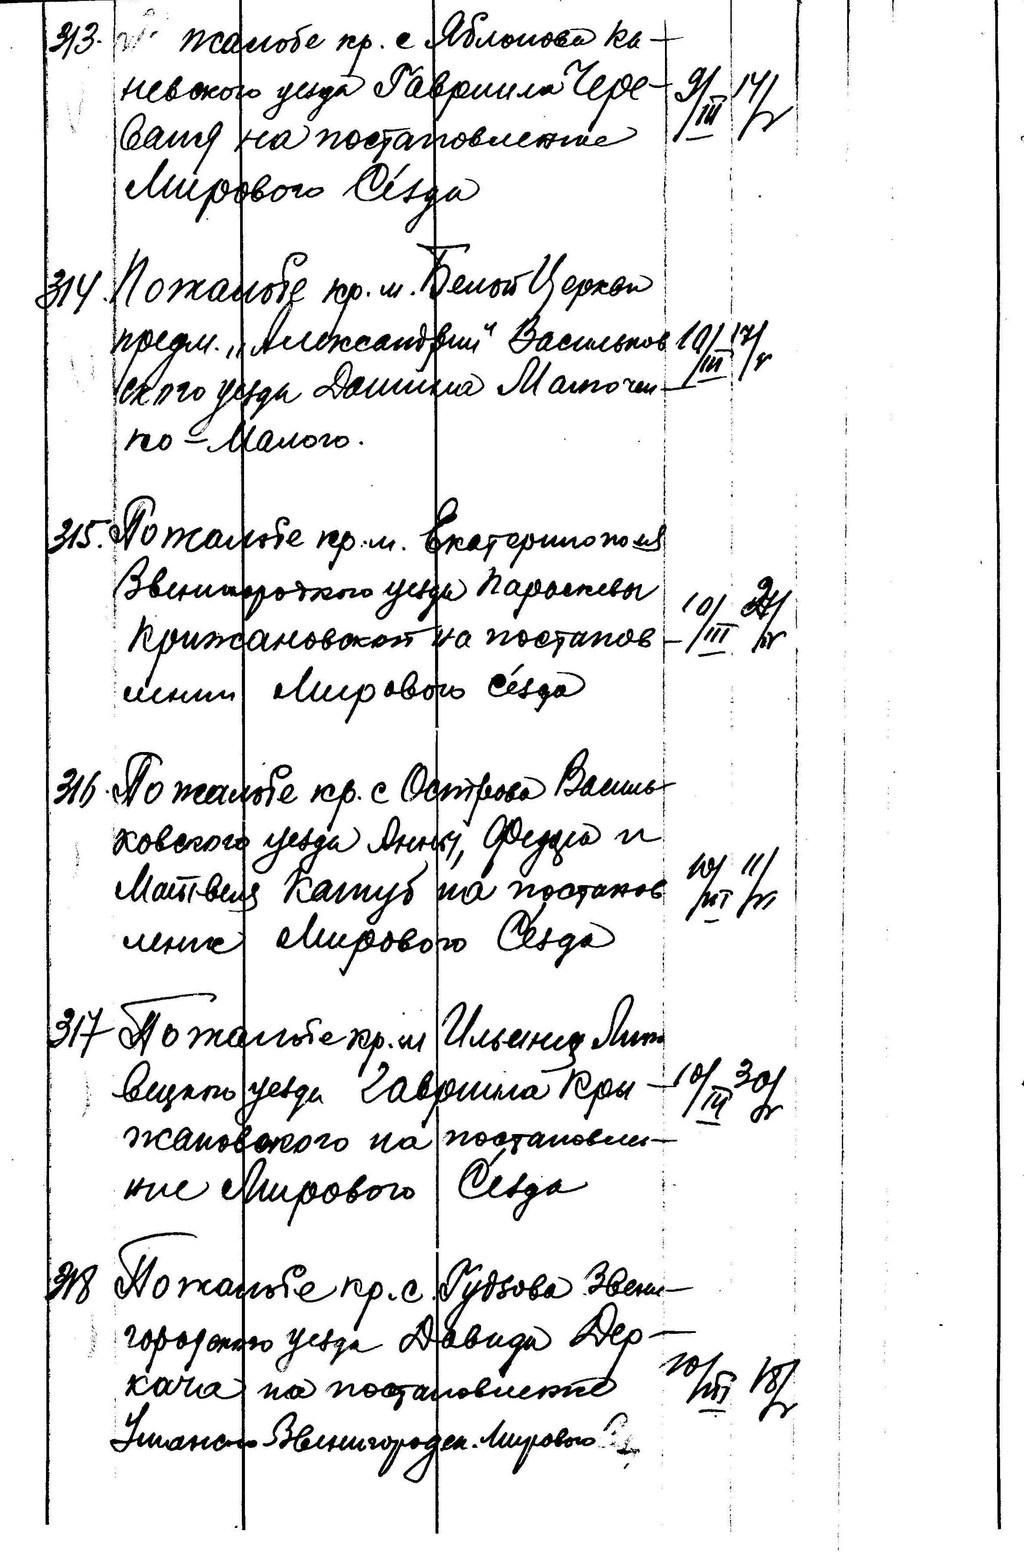 313. По жалобе кр. с Яблонова Ка-
невского уезда Гавриила Чере-
ваня на постановление
Мирового Сезда
9/III 17/V
314. По жалобе кр. м. Белой Церкви
предм. „Александрии" Васильков
ского уезда Даниила
ко-Малого.
10/III 17/V
315. По жалобе кр. м. Екатеринополя
Звенигородского уезда Параскевы
Крижановской на постанов-
лении Мирового Сезда
10/III
316. По жалобе кр. с Острова Василь-
ковского уезда Анны, Федора и
Матвея на постанов
ление Мирового Сезда
10/III 11/VI
317 По жалобе кр. м Ильинец Липо
вецкого уезда Гавриила Кри-
жановского на постановле-
ние Мирового Сезда
10/III 30/V
318 По жалобе кр. с. Гудзова Звени-
городского уезда Давида Дер-
кача на постановление
Уманско-Звенигородск. Мирового
10/III 18/V